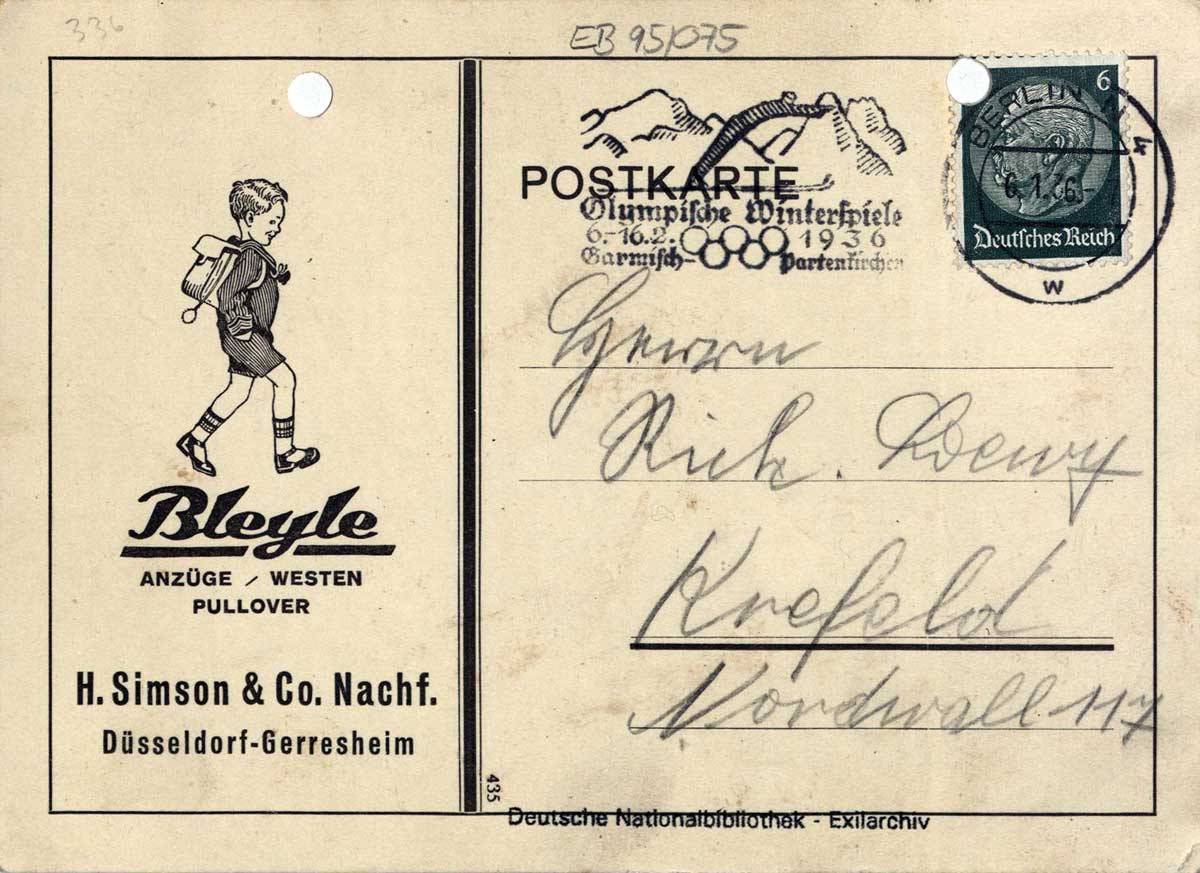 336
EB 95/075
POSTKARTE
Olympische Winterspiele
6.-16.2. 1936
Garmisch- Partenkirchen
BERLIN N 4
6.1.36.-
w
6
Deutsches Reich
Bleyle
ANZÜGE / WESTEN
PULLOVER
H. Simson & Co. Nachf.
Düsseldorf-Gerresheim
Herrn
Rich. Loewy
Krefeld
Nordwall 117
435
Deutsche Nationalbibliothek - Exilarchiv